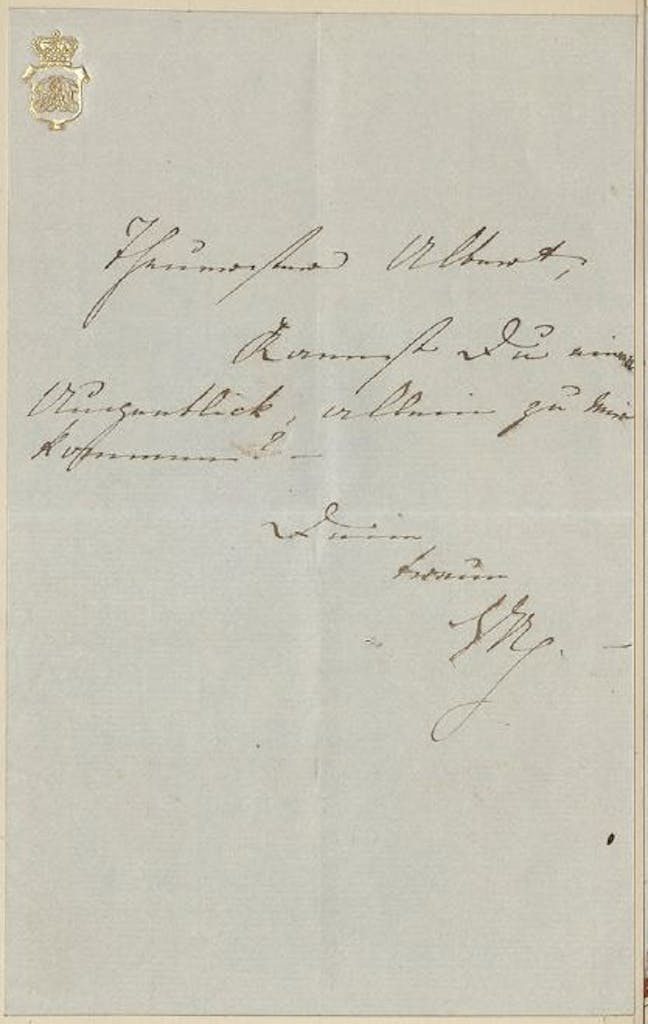 Theuerster Albert,
Kannst Du einen
Augenblick, allein zu mir
kommen? —
Deine
treue
VR. —